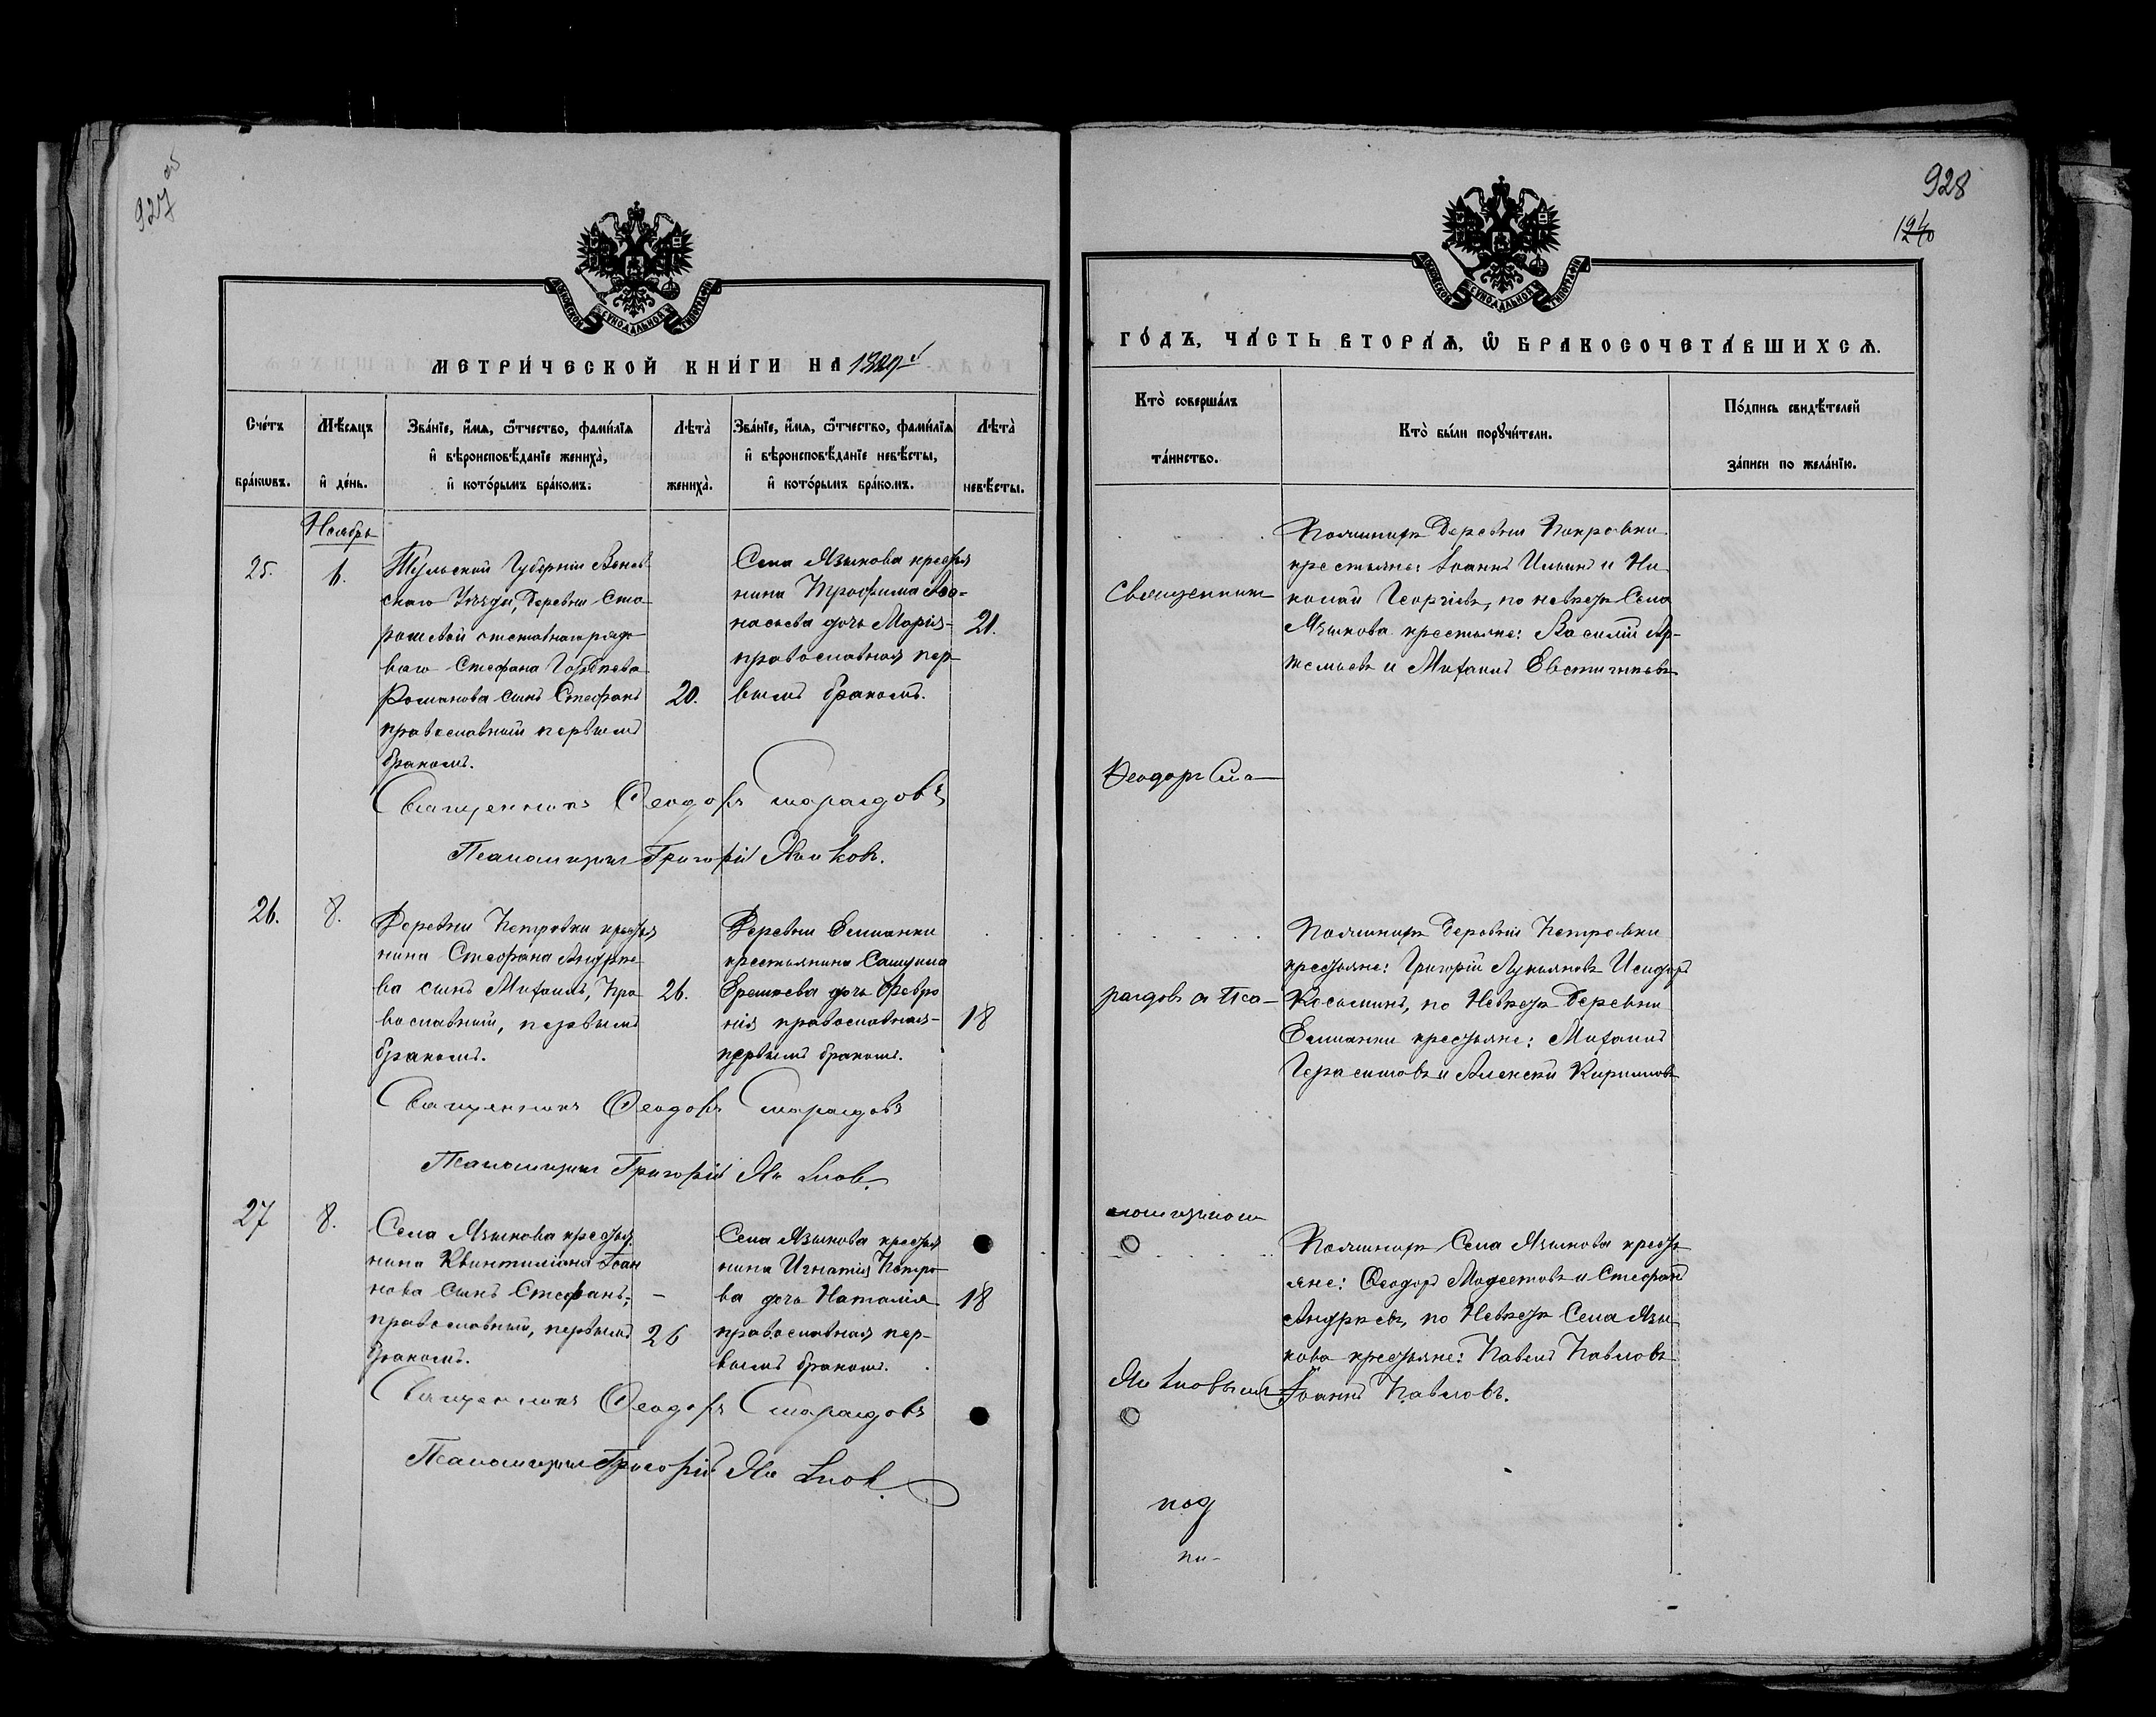 927 об
928
1240
МОСКОВСКОЙ СУНОДАЛЬНОЙ ТИПОГРАФІИ
МЕТРИ́ЧЕСКОЙ КНИ́ГИ НА
Сче́тъ бра́кѡвъ.
Мѣ́сяцъ и҆ де́нь.
Зва́нїе, и҆́мѧ, ѻ҆́тчество, фамѝлїѧ
и҆ вѣроисповѣ́данїе жениха̀,
и҆ кото́рымъ бра́комъ.
Лѣта̀ жениха̀.
Зва́нїе, и҆́мѧ, ѻ҆́тчество, фамѝлїѧ
и҆ вѣроисповѣ́данїе невѣ́сты,
и҆ кото́рымъ бра́комъ.
Лѣта̀ невѣ́сты.
Ноябрь
25.
6.
Тульской Губерніи Венев
скаго Уѣзда, Деревни Ста
отставнаго рядо
ваго Стефана
Романова сынъ Стефанъ
православный первымъ
бракомъ.
20.
Села Языкова кресть
нина Трофима Аѳа-
насьева дочь Марія
православная пер
вымъ бракомъ.
21.
Священникъ Ѳеодоръ Смарагдовъ
Псаломщикъ Григорій
26.
8.
Деревни Петровки крестья
нина Стефана Андрее
ва сынъ Михаилъ, Пра
вославный, первымъ
бракомъ.
26.
Деревни Елшанки
крестьянина Самуила
Еремеева дочь Февро
нія православная
первымъ бракомъ.
18
Священникъ Ѳеодоръ Смарагдовъ
Псаломщикъ Григорій
27
8.
Села Языкова крестья
нина Квинтиліана Іоан
нова сынъ Стефанъ,
православный, первымъ
бракомъ.
26
Села Языкова крестья
нина Игнатія Петро
ва дочь Наталія
православная пер-
вымъ бракомъ.
18
Священникъ Ѳеодоръ Смарагдовъ
Псаломщикъ Григорій
МОСКОВСКОЙ СУНОДАЛЬНОЙ ТИПОГРАФІИ
ГО́ДЪ, ЧА́СТЬ ВТОРА́Ѧ, Ѡ҆ БРАКОСОЧЕТА́ВШИХСѦ.
Кто̀ соверша́лъ
та́инство.
Кто̀ бы́ли порꙋчи́тели.
По́дпись свидѣ́телей
за́писи по жела́нїю.
Священникъ
Ѳеодоръ Сма
рагдовъ съ Пса
ломщикомъ
По женихѣ Деревни Покровки
крестьяне: Іоаннъ Ильинъ и Ни
колай Георгіевъ, по невѣстѣ Села
Языкова крестьяне: Василій Ар-
темьевъ и Михаилъ Евстигнѣевъ
По женихѣ Деревни Петровки
крестьяне: Григорій Лукьяновъ Исидоръ
Косьминъ, по Невѣстѣ Деревни
Елшанки крестьяне: Михаилъ
Герасимовъ и Алексѣй Кирилловъ
По женихѣ Села Языкова кресть
яне: Ѳеодоръ Модестовъ и Стефанъ
Андреевъ, по Невѣстѣ Села Язы
кова крестьяне: Павелъ Павловъ
Іоаннъ Павловъ.